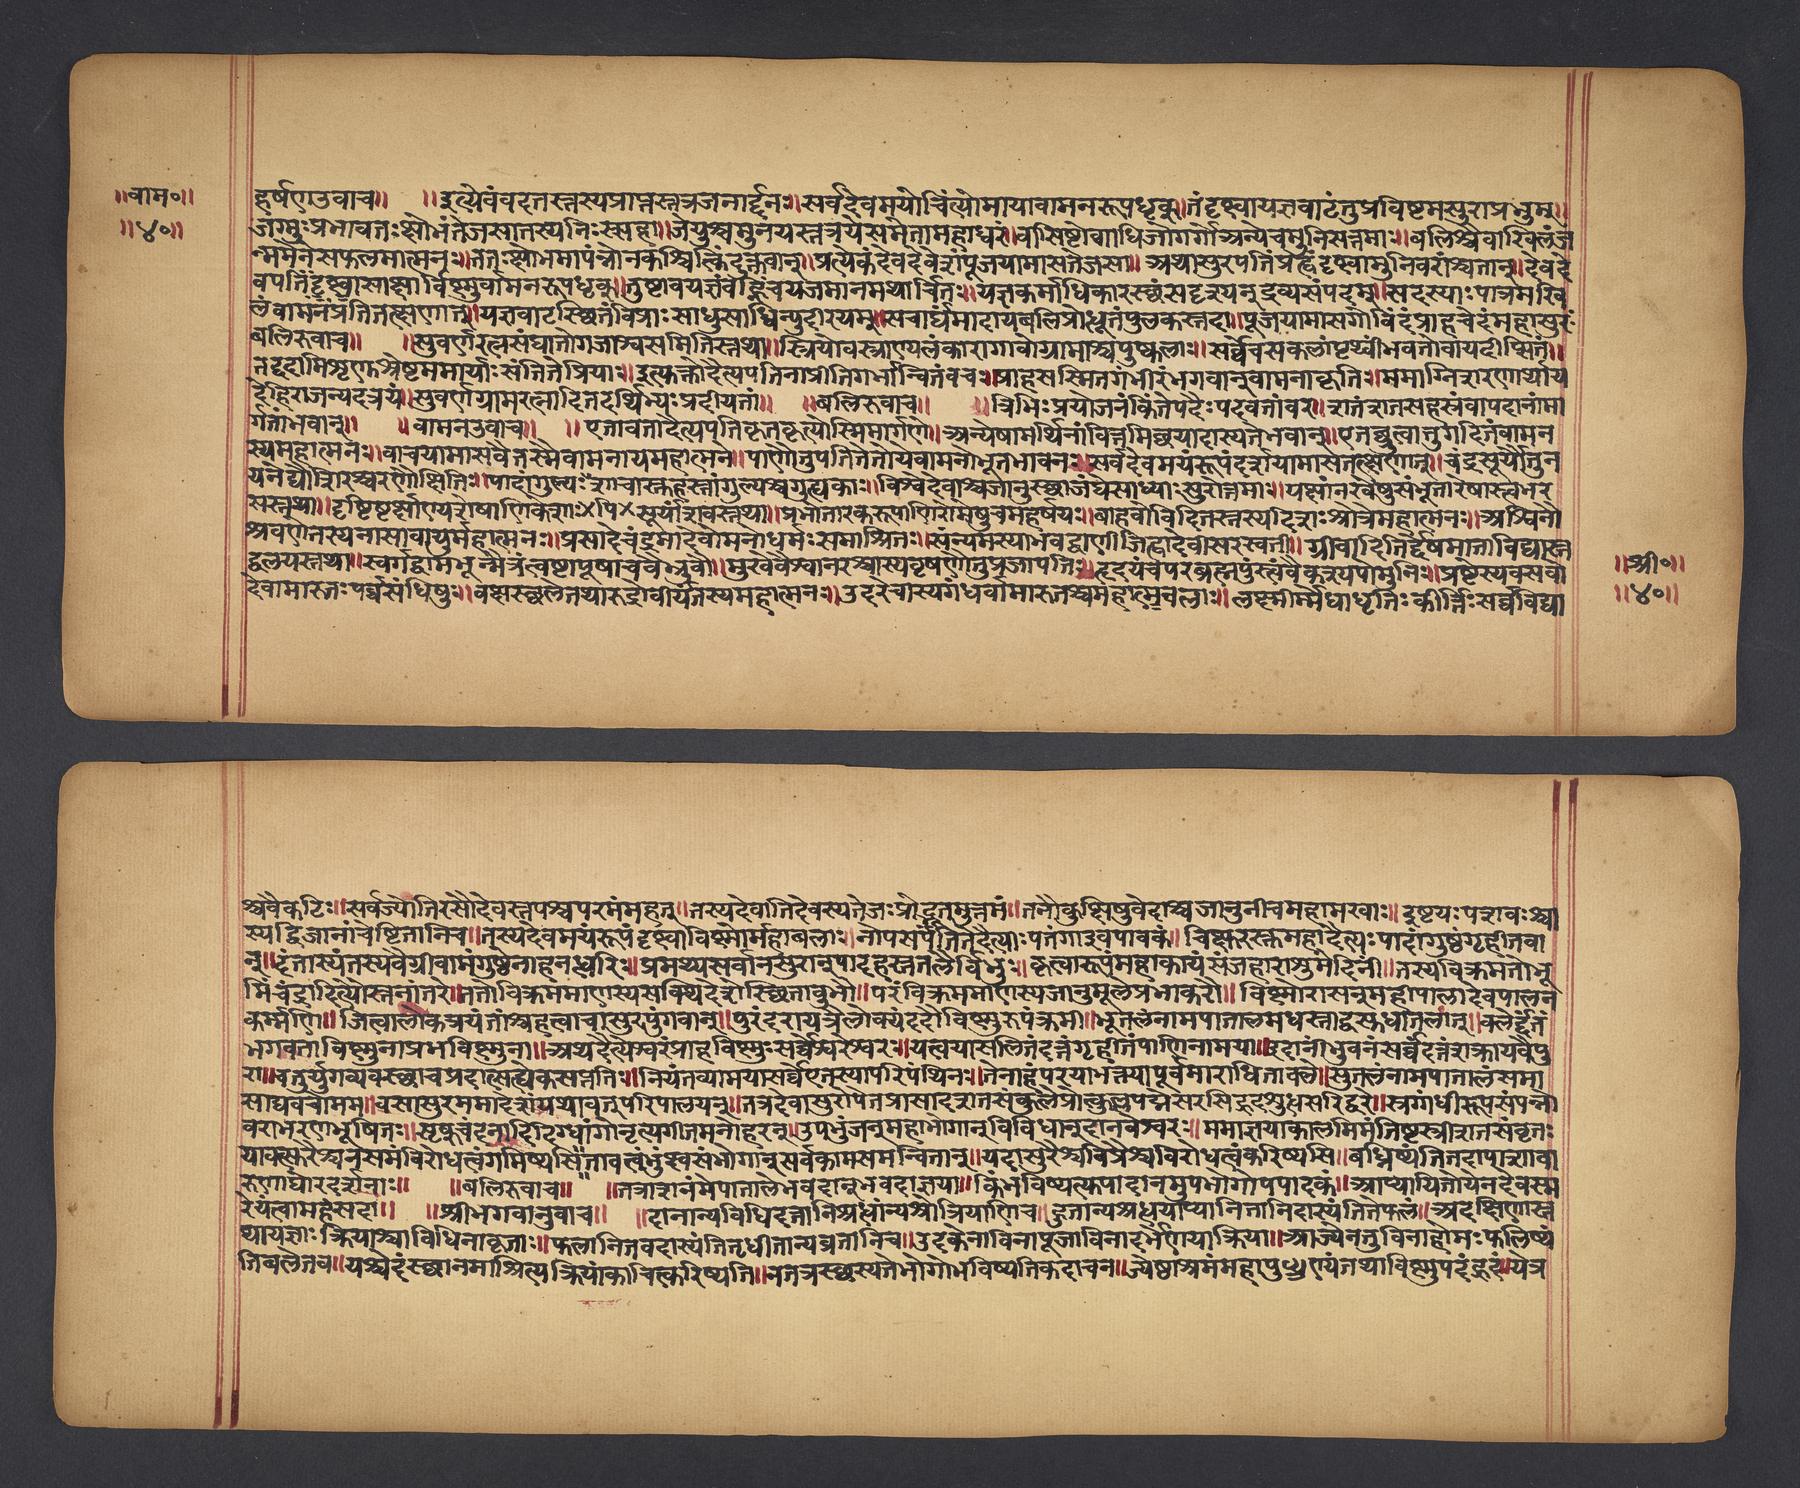 ॥वाम०॥
॥४०॥
हर्षणउवाच॥ ॥इत्येवंवदतस्तस्यप्राप्तस्तत्रजनार्द्दनः॥सर्वदेवमयोचिंत्योमायावामनरूपधृक्॥तंदृष्ट्वायज्ञवाटंतुप्रविष्टमसुराप्रभुम्॥
जग्मुःप्रभावतःक्षोभंतेजसातस्यनिः जेपुश्चमुनयस्तत्रयेसमेतामहाध्वरे॥वसिष्टोगाधिजोगर्गोअन्येचमुनिसत्तमाः॥बलिश्चैवाखिलंज
न्ममेनेसफलमात्मनः॥ततःक्षोभमापंन्नोनकश्चित्किंदुक्तवान्॥प्रत्येकंदेवदेवेशंपूजयामासतेजसा॥अथासुरपतिंप्रह्वंदृष्ट्वामुनिवरांश्चतान्॥देवदे
वपतिंदृष्ट्वासाक्षाविष्णुर्वामनरूपधृक्॥तुष्टावयज्ञंवह्निंचयजमानमथार्चितः॥यज्ञकर्माधिकारस्छंसदृश्यन्द्रव्यसंपदम्॥सदस्याःपात्रमखि
लंवामनंप्रतितत्क्षणात्॥यज्ञवाटस्छितंविप्राःसाधुसाध्वित्युदारयम्॥सचार्घ्यमादायबलिप्रोद्भूतंपुलकस्तदा॥पूजयामासगोविंदंप्राहचेदंमहासुरः
बलिरुवाच॥ ॥सुवर्णरत्नसंघातोगजाश्वसमितिस्तथा॥स्त्रियोवस्त्राण्यलंकारागावोग्रामाश्चपुष्कलाः॥सर्व्वेचसकलांपृथ्वींभवतोवायदीप्सितं॥
तद्ददामिशृणुश्रेष्टममार्याःसंतितेप्रियाः॥इत्युक्तोदैत्यपतिनाप्रीतिगर्भान्वितंवचः॥प्राहसस्मितगंभीरंभगवान्वामनाकृतिः॥ममाग्निशरणार्थाय
देहिराजन्पदत्रयं॥सुवर्णग्रामरत्नादितदर्थिभ्यःप्रदीयतां॥ ॥बलिरुवाच॥ ॥त्रिभिःप्रयोजनंकिंतेपदैःपदवतांवर॥शतंशतसहस्रंवापदानांमा
र्गतांभवान्॥ ॥वामनउवाच॥ ॥एतावतादैत्यपतेकृतकृत्योस्मिमार्गणे॥अन्येषामर्थिनांवित्तमिच्छयादास्यतेभवान्॥एतच्छ्रुत्वातुगदितंवामन
स्यमहात्मनः॥वाचयामासवैतस्मैवामनायमहात्मने॥पाणौतुपतितेतोयेवामनोभूतभावनः॥सर्वदेवमयंरूपंदर्शयामासतत्क्षणात्॥चंद्रसूर्यौतुन
यनेद्यौशिरश्चरणौक्षितिः॥पादांगुल्यः विश्वेदेवाश्चजानुस्छाजंघेसाध्याःसुरोत्तमाः॥यक्षांनखेषुसंभूतारेषास्त्वभर
सस्तथा॥दृष्टिष्ट केशाः×पि×सूर्यांशवस्तथा॥प्रभोतारकरूपाणिरोमेषुचमहर्षयः॥बाहवोविदिशस्तस्यदिशःश्रोत्रेमहात्मनः॥अश्विनौ
श्रवणेतस्यनासावायुर्महात्मनः॥प्रसादेचंद्रमादेवोमनोधर्मःसमाश्रितः॥सत्यमस्याभवद्वाणीजिह्वादेवीसरस्वती॥ग्रीवादितिर्द्देवमाताविद्यास्त
द्वलयस्तथा॥स्वर्गद्वामभून्मैत्रंत्वष्टापूषाचवैभ्रुवौ॥मुखंवैश्वानरश्चास्यवृषणौतुप्रजापतिः॥हृदयंचपरंब्रह्मपुंस्त्वंवैकश्यपोमुनिः॥प्रष्टेस्यवसवो
देवामारुतःपर्व्वसंधिषु॥वक्षस्छलेतथारुद्रोधैर्येतस्यमहात्मनः॥उदरेचास्यगंधर्वामारुतश्चमहात्मबलाः॥लक्ष्मीर्म्मेधाधृतिःकीर्त्तिःसर्व्वविद्या
॥श्री०॥
॥४०॥
श्चवैकटिः॥सर्वज्योतिरसौदेवस्तपश्चपरमंमहत्॥तस्यदेवातिदेवस्यतेजःप्रोद्भूतमुत्तमं॥तनौकुक्षिषुवेदाश्चजानुनीचमहामखाः॥इष्टयःपशवःश्चा
स्यद्विजानांचेष्टितानिच॥तस्यदेवमयंरूपंदृष्ट्वाविष्णोर्महाबलाः॥नोपसर्पंतितेदैत्याःपतंगाइवपावकं॥चिक्षुरस्तमहादैत्यःपादांगुष्ठंगृहीतवा
न्॥दंतास्यंतस्यवैग्रीवामंगुष्ठेनाहनध्वरिः॥प्रमथ्यसर्वानसुरान्पादहस्ततलैर्विभुः॥कृत्वारूपंमहाकायंसंजहाराशुमेदिनीं॥तस्यविक्रमतोभू
मिंचंद्रादित्यौस्तनांतरे॥नतोविक्रममाणस्यसक्थिदेशेस्छितावुभौ॥परंविक्रममाणस्यजानुमूलेप्रभाकरौ॥विष्णोरासन्महीपालादेवपालन
कर्म्मणि॥जित्वालोकत्रयंतांश्चहत्वाचासुरपुंगवान्॥पुरंदरायत्रैलोक्यंददौविष्णुरुपक्रमी॥भूतलंनामपातालमधस्ताद्वसुधातलात्॥बलेर्द्दत्तं
भगवताविष्णुनाप्रभविष्णुना॥अथदैत्येश्वरंप्राहविष्णुःसर्व्वेश्वरेश्वरः॥यत्वयासलिलंदत्तंगृहीतंपाणिनामया॥इदानींभुवनंसर्व्वंदत्तंशक्रायवैपु
रा॥चतुर्युगव्यवस्छाचप्रदात्सत्येकसप्ततिः॥नियंतव्यामयासर्व्वेएतस्यापरिपंथिनः॥तेनाहंपरयाभक्त्यापूर्वमाराधितोबले॥सुतलंनामपातालंसमा
साद्यवचोमम॥वसासुरममादेशंयथावत्परिपालयन्॥तत्रदेवासुरोपेतप्रासादशतसंकुलेप्रोत्फुल्लपद्मसरसिह्रदशुद्धसरिद्वरे॥स्त्रग्गंधीरूपसंपन्नो
वराभरणभूषितः॥सृक्चंदनादिदिग्धांगोनृत्यगीतमनोहरन्॥उपभुंजन्महाभोगान्विविधान्दानवेश्वरः॥ममाज्ञयाकालमिमंतिष्टस्त्रीशतसंवृतः
यावत्सुरैश्चर्नसमंविरोधत्वंगमिष्यसि॥तावत्त्वंभुंक्ष्वसंभोगान्सर्वकामसमन्वितान्॥यदासुरैश्चविप्रैश्चविरोधत्वंकरिष्यसि॥बध्निष्यंतितदापाशावा
रुणाघोरदर्शनाः॥ ॥बलिरुवाच॥ ॥तत्राशनंमेपातालेभवदान्भवदाज्ञया॥किंभविष्यत्युपादानमुपभोगोपपादकं॥आप्यायितोयेनदेवस्म
रेयंत्वामहंसदा॥ ॥श्रीभगवानुवाच॥ ॥दानान्यविधिदत्तानिश्राद्धांन्यश्रोत्रियाणिच॥हुतान्यश्रद्धयाप्यानितानिदास्यंतितेफलं॥अदक्षिणास्त
थायज्ञाःक्रियाश्चाविधिनाकृताः॥फलानितवदास्यंतिनृधीतान्यव्रतानिच॥उदकेनविनापूजाविनादर्भेणयाक्रिया॥आज्येनतुविनाहोमःफलिष्यं
तिबलेतव॥यश्चेदंस्छानमाश्रित्यक्रियांकाचित्करिष्यति॥नतत्रस्छस्यतेभोगोभविष्यतिकदाचन॥ज्येष्ठाश्रमंमहापुण्यंतथाविष्णुपदंह्रदं॥येत्र